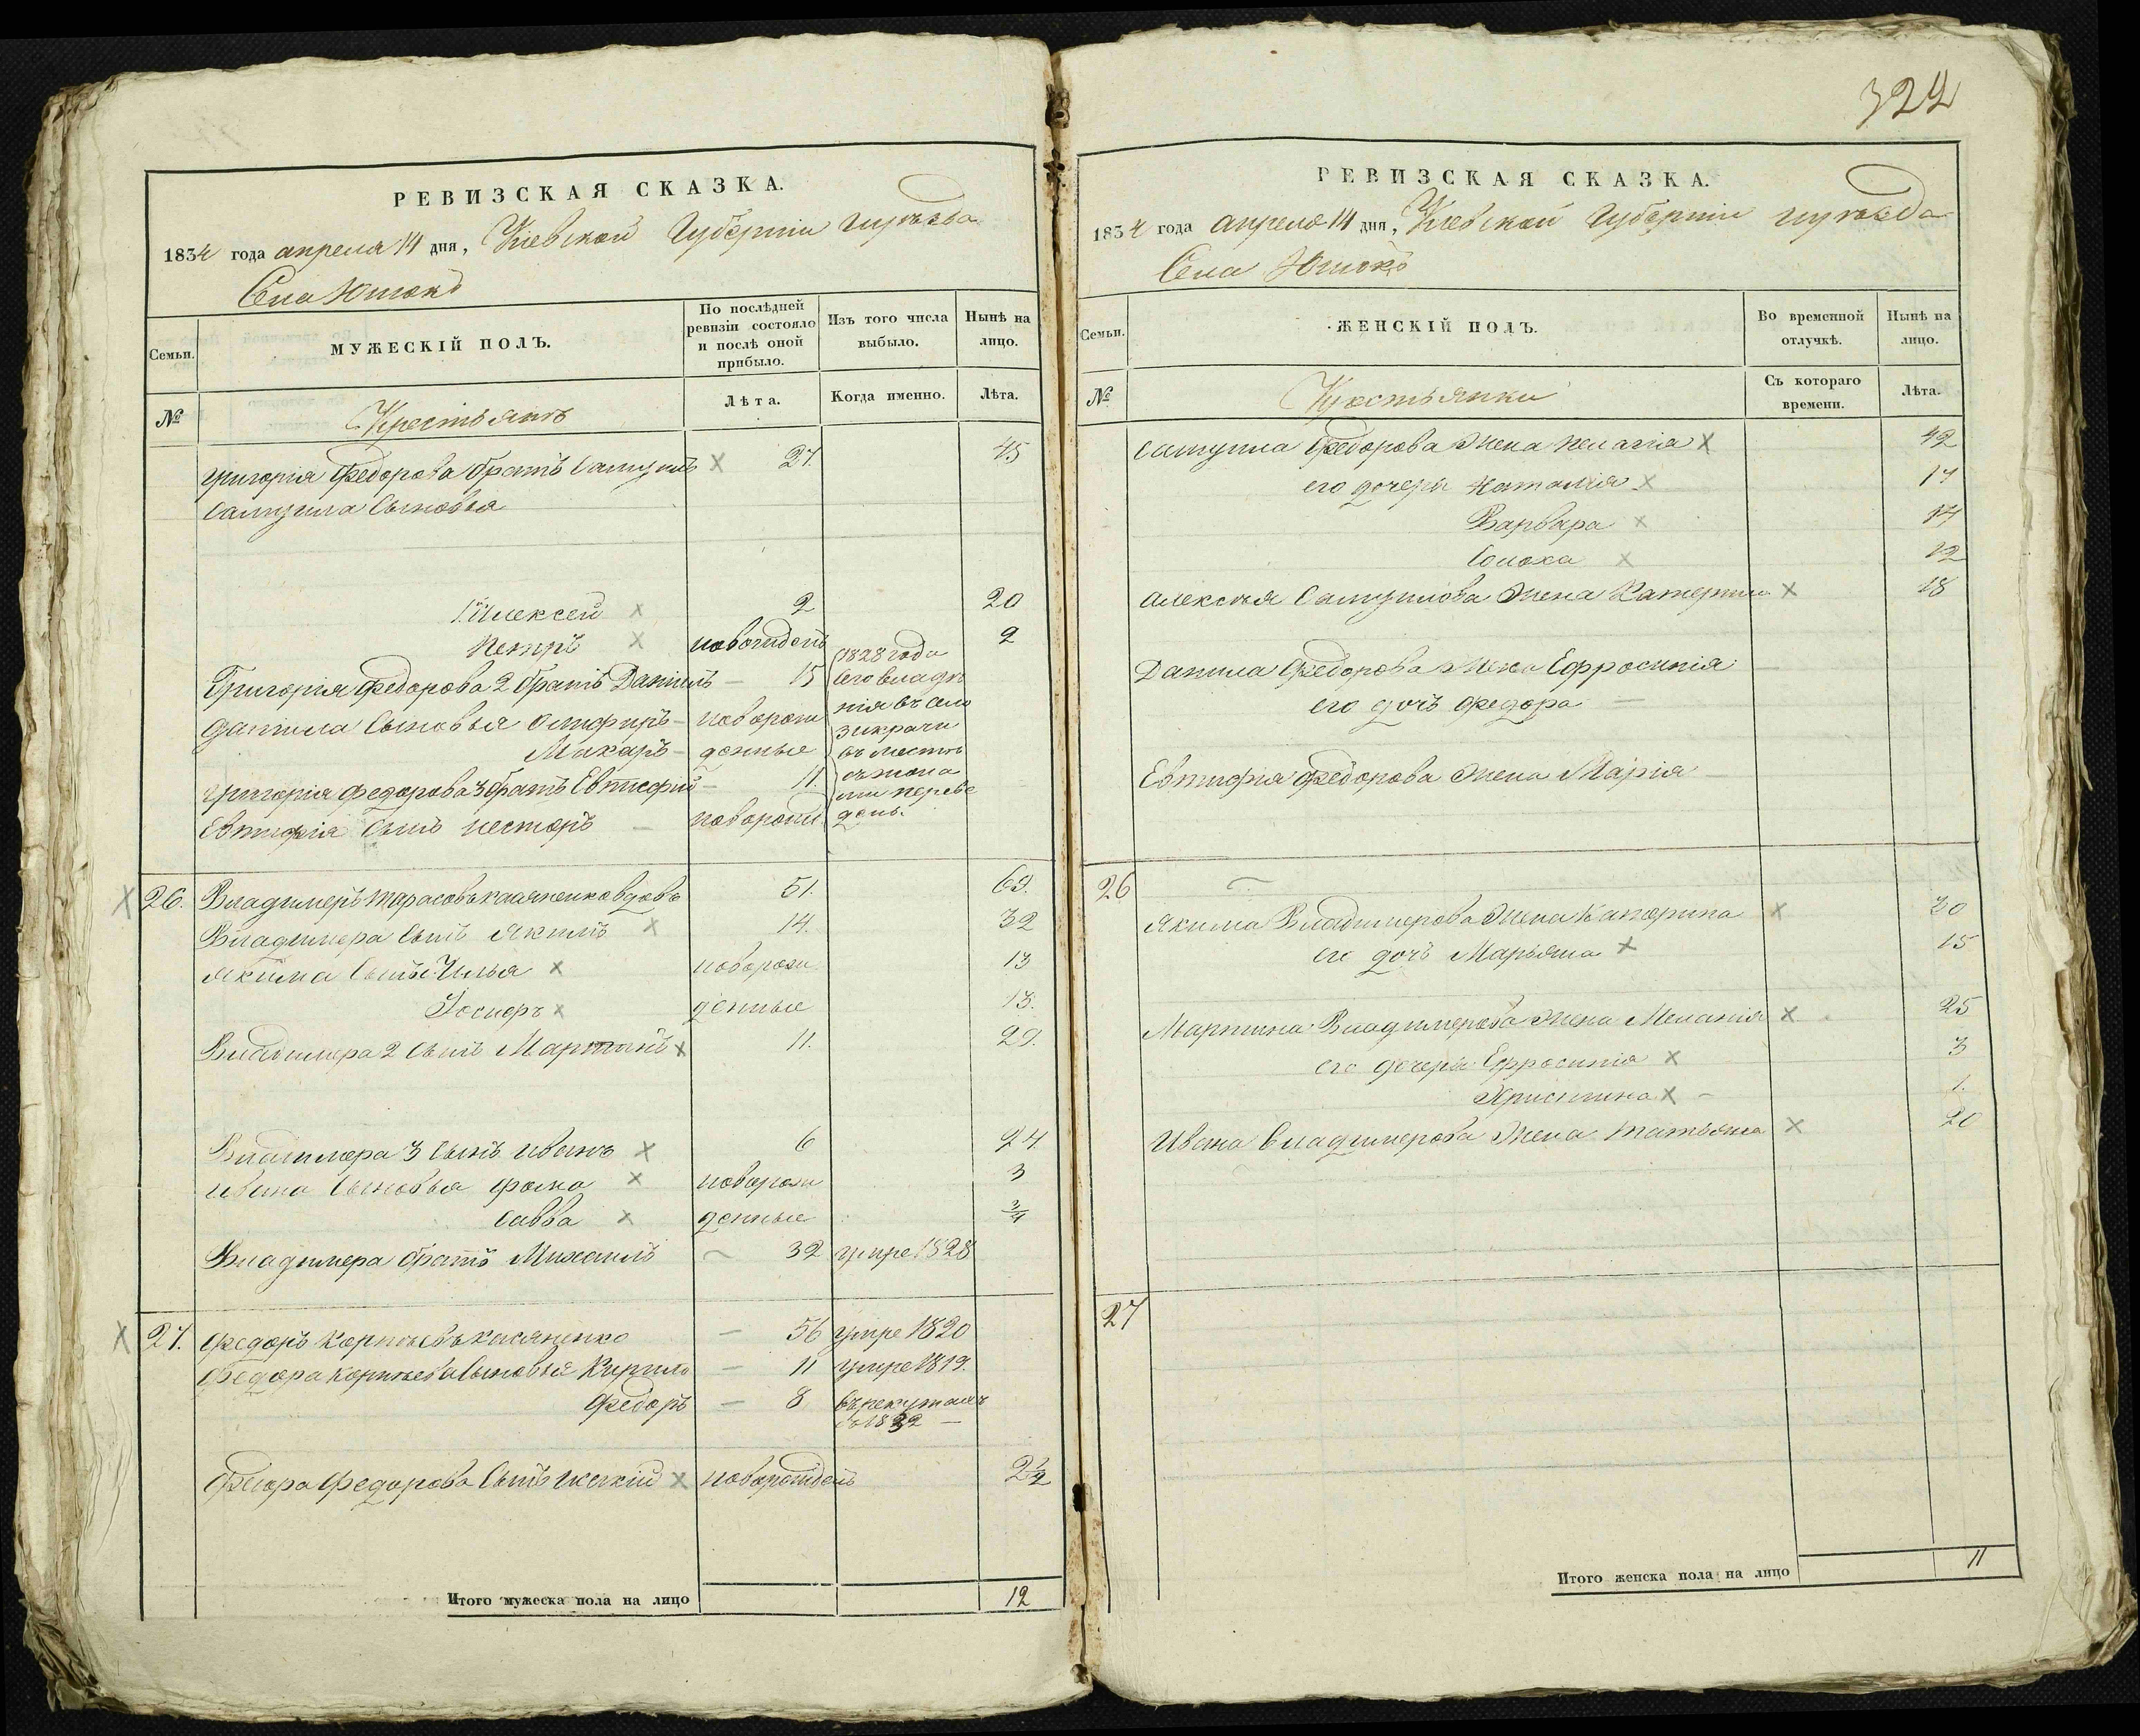 324
РЕВИЗСКАЯ СКАЗКА.
1834 года апреля 14 дня, Кіевской Губерніи
Села
Семьи.
МУЖЕСКІЙ ПОЛЪ.
По послѣдней ревизіи состояло и послѣ оной прибыло.
Изъ того числа выбыло.
Нынѣ на лицо.
№
Лѣта.
Когда именно.
Лѣта.
Крестьянъ
Григорія Федорова братъ Самуилъ 27. 45
Самуила Сыновья
1й Алексей 2 20
Петръ новорожденъ 2
Григорія Федорова 2 братъ Данилъ — 15
1828 года
Данила Сыновья — новорож
Макаръ — денные
въ местеч
Григорія Федорова 3 братъ Евтифій — 11.
Евтифія Сынъ Несторъ — новорожд
переве
денъ.
26. Владимеръ Тарасовъ вдовъ 51. 69.
Владимера Сынъ Якимъ 14. 32
Якима Сынъ Илья новорож 13
Іосифъ денные 13.
Владимера 2 Сынъ Мартинъ 11. 29.
Владимера 3 Сынъ Иванъ 6 24
Ивана Сыновья Фока новорож 3
Савва денные 3/4
Владимера братъ Михаилъ 32 умре 1828
27. Федоръ Корніевъ Касяненко — 56 умре 1820
Федора Корніева Сыновья Кирило — 11 умре 1819.
Федоръ — 8 въ рекутахъ
съ 1832 —
Федора Федорова Сынъ новорожденъ 2 1/2
Итого мужеска пола на лицо 12
РЕВИЗСКАЯ СКАЗКА.
1834 года апреля 14 дня, Кіевской Губерніи
Села
Семьи.
ЖЕНСКІЙ ПОЛЪ.
Во временной отлучкѣ.
Нынѣ на лицо.
№
Съ котораго времени.
Лѣта.
Крестьянки
Самуила Федорова Жена Пелагія 42
его дочери Наталія 17
Варвара 14
Солоха 12
Алексея Самуилова Жена Катерина 18
Данила Федорова Жена Ефросинія —
его дочь Федора —
Евтифія Федорова Жена Марія
26
Якима Владимерова Жена Катерина 30
его дочь Марьяна 15
Мартина Владимерова Жена Меланія 25
его дочери Ефросинія 3
Христина 1.
Ивана Владимерова Жена Татьяна 20
27
Итого женска пола на лицо 11